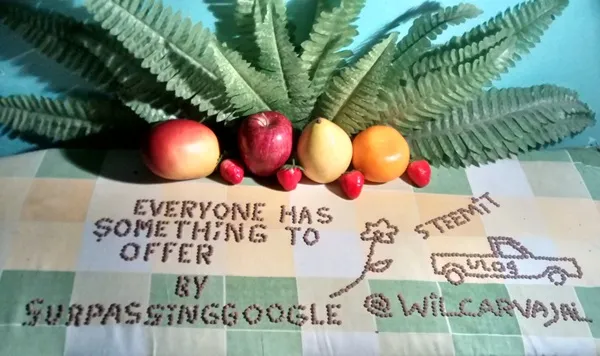 EVERYONE HAS
SOMETHING TO
OFFER
BY
SURPASSINGGOOGLE
STEEMIT
VLOG
@WILCARVAJAL